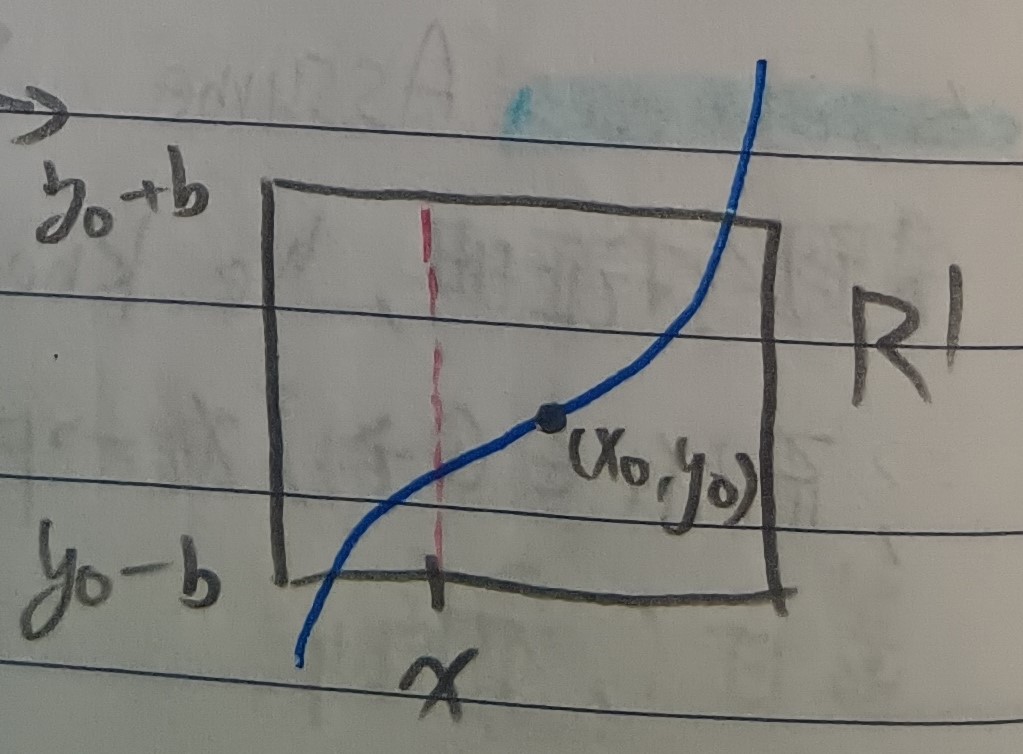 y₀+b
R'
(x₀,y₀)
y₀-b
x